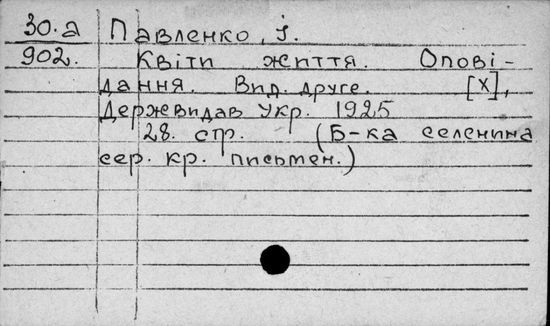 30.а Павленко, І.
902. Квіти життя. Опові-
дання. Вид. друге. [Х],
Держвидав Укр. 1925
28. стр. (Б-ка селенина
сер. кр. письмен.)